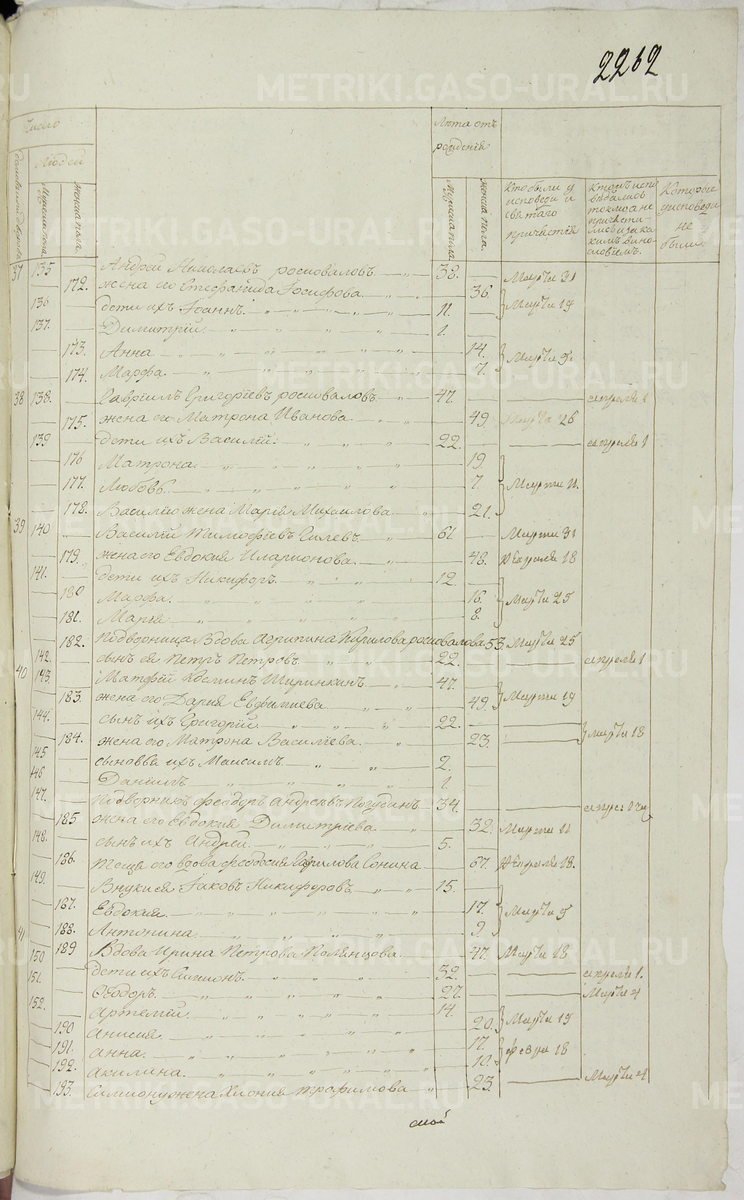 2262
METRIKI.GASO-URAL.RU
Число
Людей
Мужеска пола.
Женска пола.
Лѣта отъ рождения
Мужеска пола.
Женска пола.
Кто были у исповеди и святаго причастія
Которые у исповеди не были.
37 135 Андрей Николаевъ росковаловъ 38. Марта 31
172. жена его Стефанида Іосифова. 36.
136 дети ихъ Іоаннъ. 11. Марта 19
137. Димитрій. 1.
173. Анна 14. Марта 5.
174. Марфа. 7.
38 138. Гавріилъ Григоріевъ росковаловъ 47. апреля 1
175. жена его Матрона Иванова. 49. Марта 25
139 дети ихъ Василій: 22. апреля 1
176 Матрона. 19.
177. Любовь. 7 Марта 11.
178. Василію жена Марія Михаилова 21.
39 140 Василій Тимофіевъ Гилевъ. 61. Марта 31
179. жена его Евдокия Иларионова. 48. Февраля 18
141. дети ихъ Никифоръ. 12.
180 Марфа. 16. Марта 25
181. Марія 8.
182. Подворница Вдова Агрипина Кирилова росковалова 53. Марта 25
142. сынъ ея Петръ Петровъ. 22. апреля 1
40 143. Матфей Ширинкинъ 47.
183. жена его Дарія Евфимиева 49. Марта 19
144. сынъ ихъ Григорій. 22.
184. жена его Матрона Василіева. 23. Марта 18
145 сыновья ихъ Максимъ 2.
146 Даніилъ 1.
147. Подворникъ Феодоръ Андреевъ Погудинъ 34.
185 жена его Евдокия Димитріева 32. Марта 11
148. сынъ ихъ Андрей. 5.
186. Теща его вдова Феодосия Гаврилова Сонина 67. Февраля 18.
149. Внуки ея Іаковъ Никифоровъ 15.
187. Евдокия. 17. Марта 5
188. Антонина. 9.
41 189 Вдова Ирина Петрова 77. Марта 18
150 дети ихъ Симионъ. 32. апреля 1.
151. Феодоръ. 27. Марта 4
152. Артемій. 14.
190 Анисия. 20. Марта 19
191. Анна. 17. февра 18
192. Акилина. 10.
193. Симиону жена Хиония Трофимова 23. Марта 4